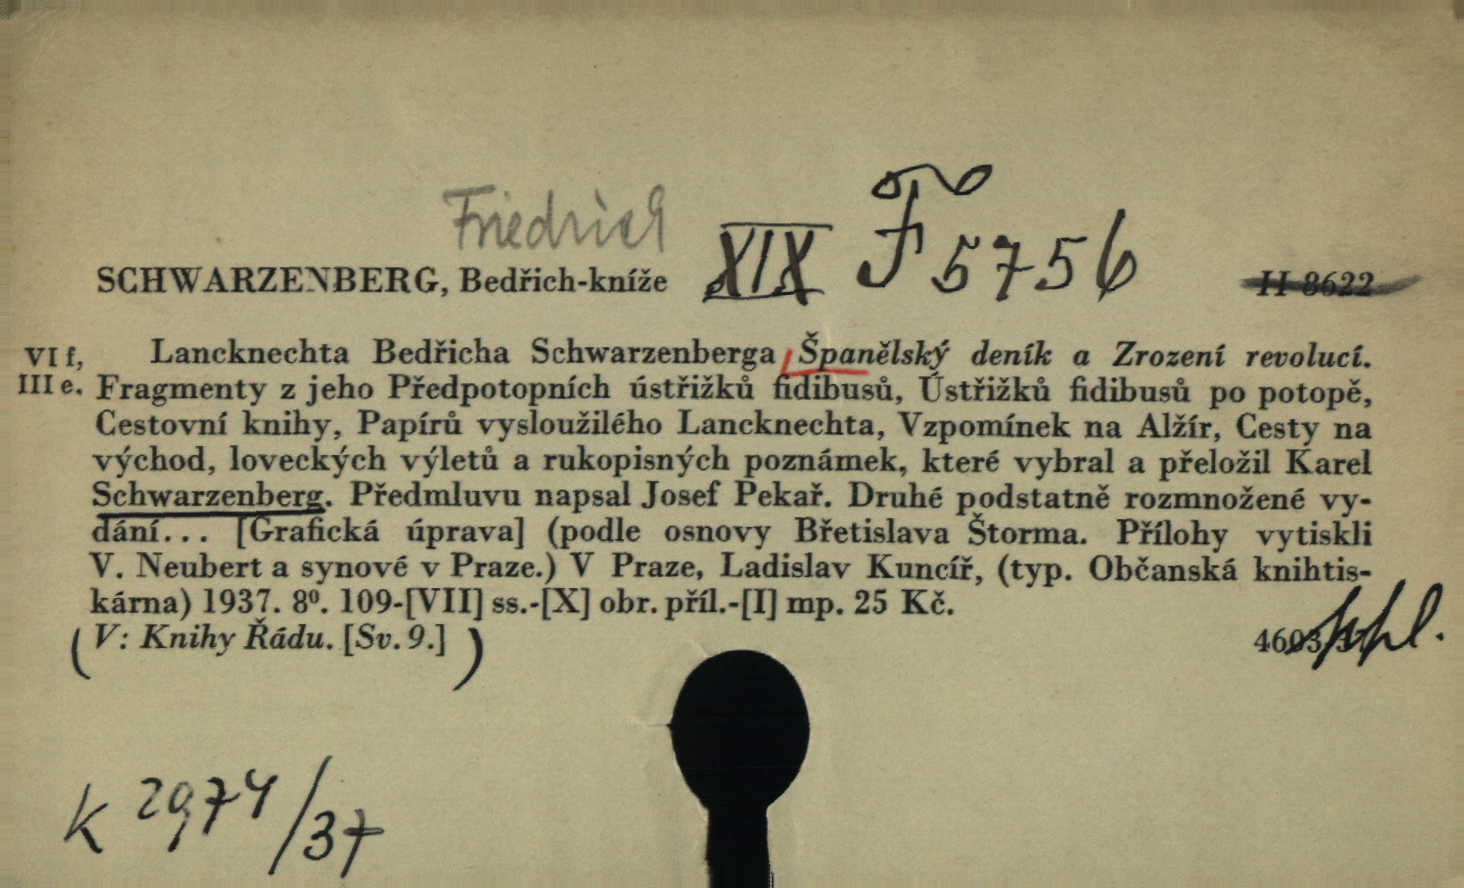 Friedrich
XIX F 5756
SCHWARZENBERG, Bedřich-kníže
H 8622
VI f,
III e.
Lancknechta Bedřicha Schwarzenberga Španělský deník a Zrození revolucí.
Fragmenty z jeho Předpotopních ústřižků fidibusů, Ústřižků fidibusů po potopě,
Cestovní knihy, Papírů vysloužilého Lancknechta, Vzpomínek na Alžír, Cesty na
východ, loveckých výletů a rukopisných poznámek, které vybral a přeložil Karel
Schwarzenberg. Předmluvu napsal Josef Pekař. Druhé podstatně rozmnožené vy-
dání... [Grafická úprava] (podle osnovy Břetislava Štorma. Přílohy vytiskli
V. Neubert a synové v Praze.) V Praze, Ladislav Kuncíř, (typ. Občanská knihtis-
kárna) 1937. 8⁰. 109-[VII] ss.-[X] obr. příl.-[I] mp. 25 Kč.
(V: Knihy Řádu. [Sv. 9.])
K 2974/37